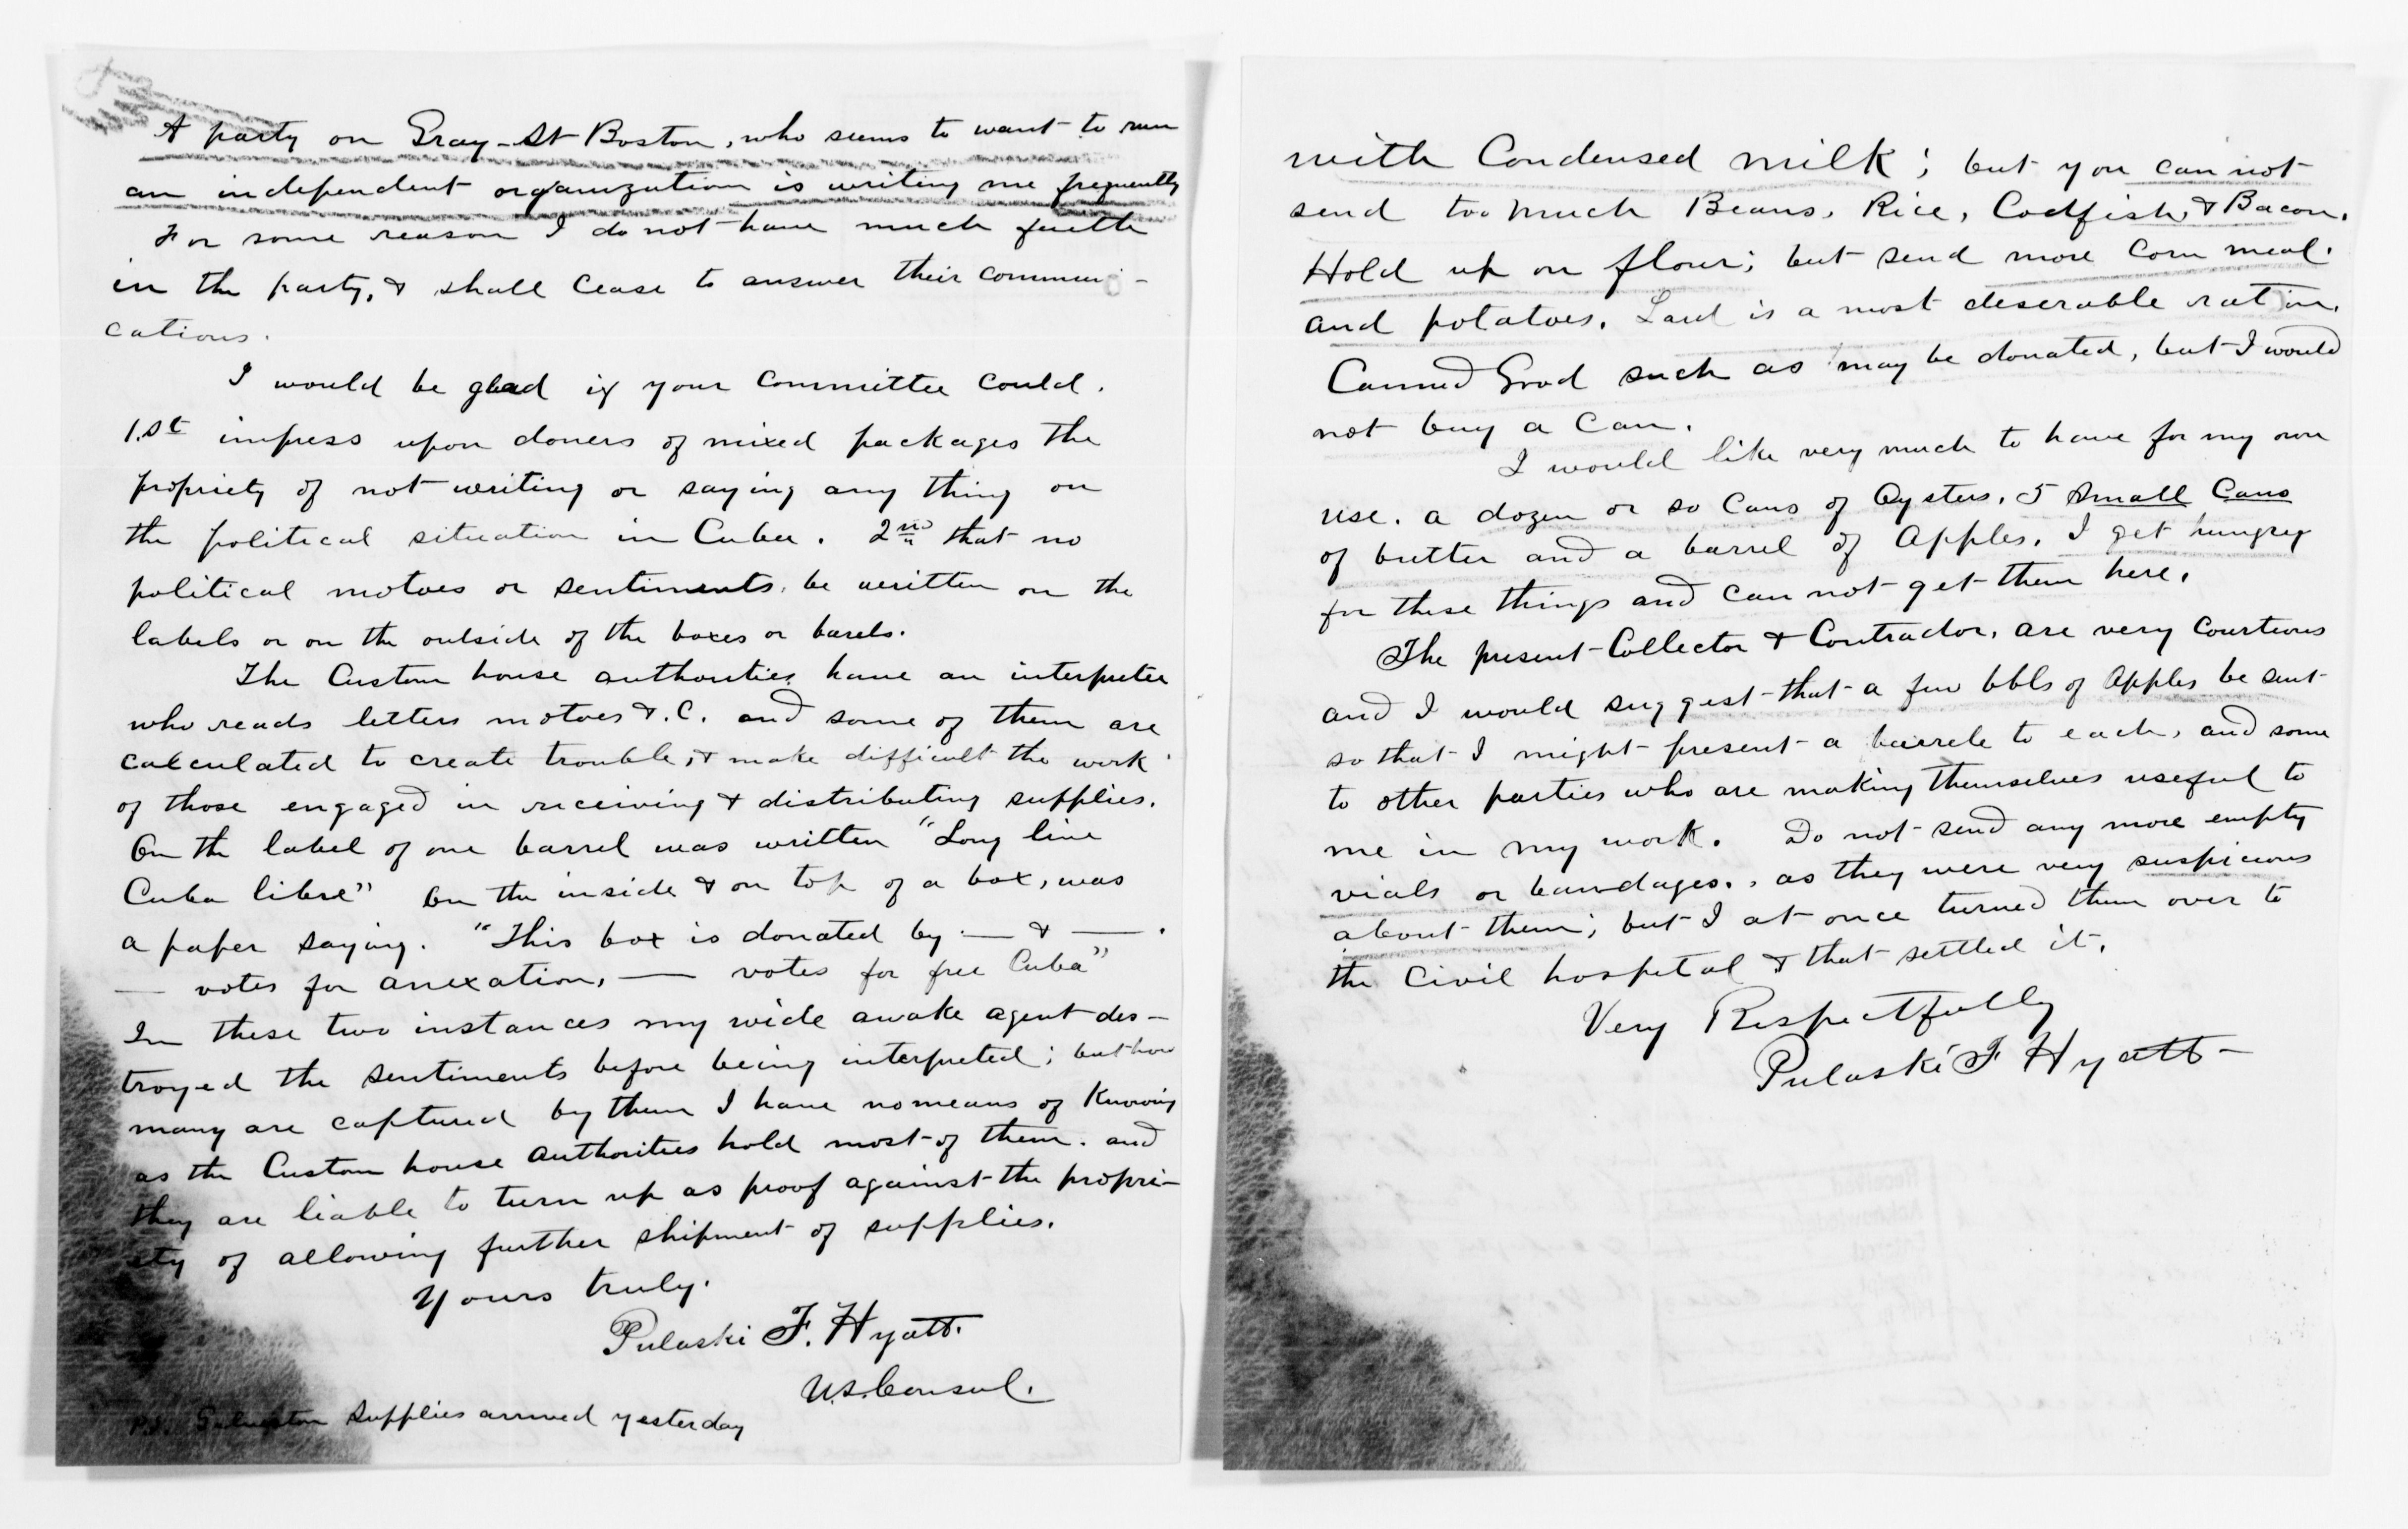 A party on Gray-St Boston, who seems to want to run
an independent organization is writing me frequently
For some reason I do not have much faith
in the party, & shall cease to answer their communi-
cations.
I would be glad if your committee could.
1.st impress upon doners of mixed packages the
propriety of not writing or saying any thing on
the political situation in Cuba. 2nd that no
political motoes or sentiments. be written on the
labels or on the outside of the boxes or barels.
The Custom house authorities have an interpreter
who reads letters motoes &.C. and some of them are
calculated to create trouble, & make difficult the work
of those engaged in receiving & distributing supplies.
On the label of one barrel was written "Long live
Cuba libre" On the inside & on top of a box, was
a paper saying. "This box is donated by — & — .
— votes for anexation, — votes for free Cuba"
In these two instances my wide awake agent des-
troyed the sentiments before being interpreted; but how
many are captured by them I have no means of Knowing
as the Custom house authorities hold most of them. and
they are liable to turn up as proof against the propri-
ety of allowing further shipment of supplies.
Yours truly.
Pulaski F. Hyatt.
U.S. Consul.
P.S. Galveston Supplies arrived yesterday
with Condensed milk; but you can not
send too much Beans, Rice, Codfish, & Bacon.
Hold up on flour; but send more Corn meal.
and potatoes. Lard is a most deserable ration.
Canned Good such as may be donated, but I would
not buy a Can.
I would like very much to have for my own
use. a dozen or so Cans of Oysters, 5 small Cans
of butter and a barrel of Apples. I get hungry
for these things and can not get them here.
The present Collector & Contractor, are very Courteous
and I would suggest that a few bbls of Apples be sent
so that I might present a barrele to each, and some
to other parties who are making themselves useful to
me in my work. Do not send any more empty
vials or bandages., as they were very suspicious
about them; but I at once turned them over to
the Civil hospital & that settled it.
Very Respectfully
Pulaski F Hyatt